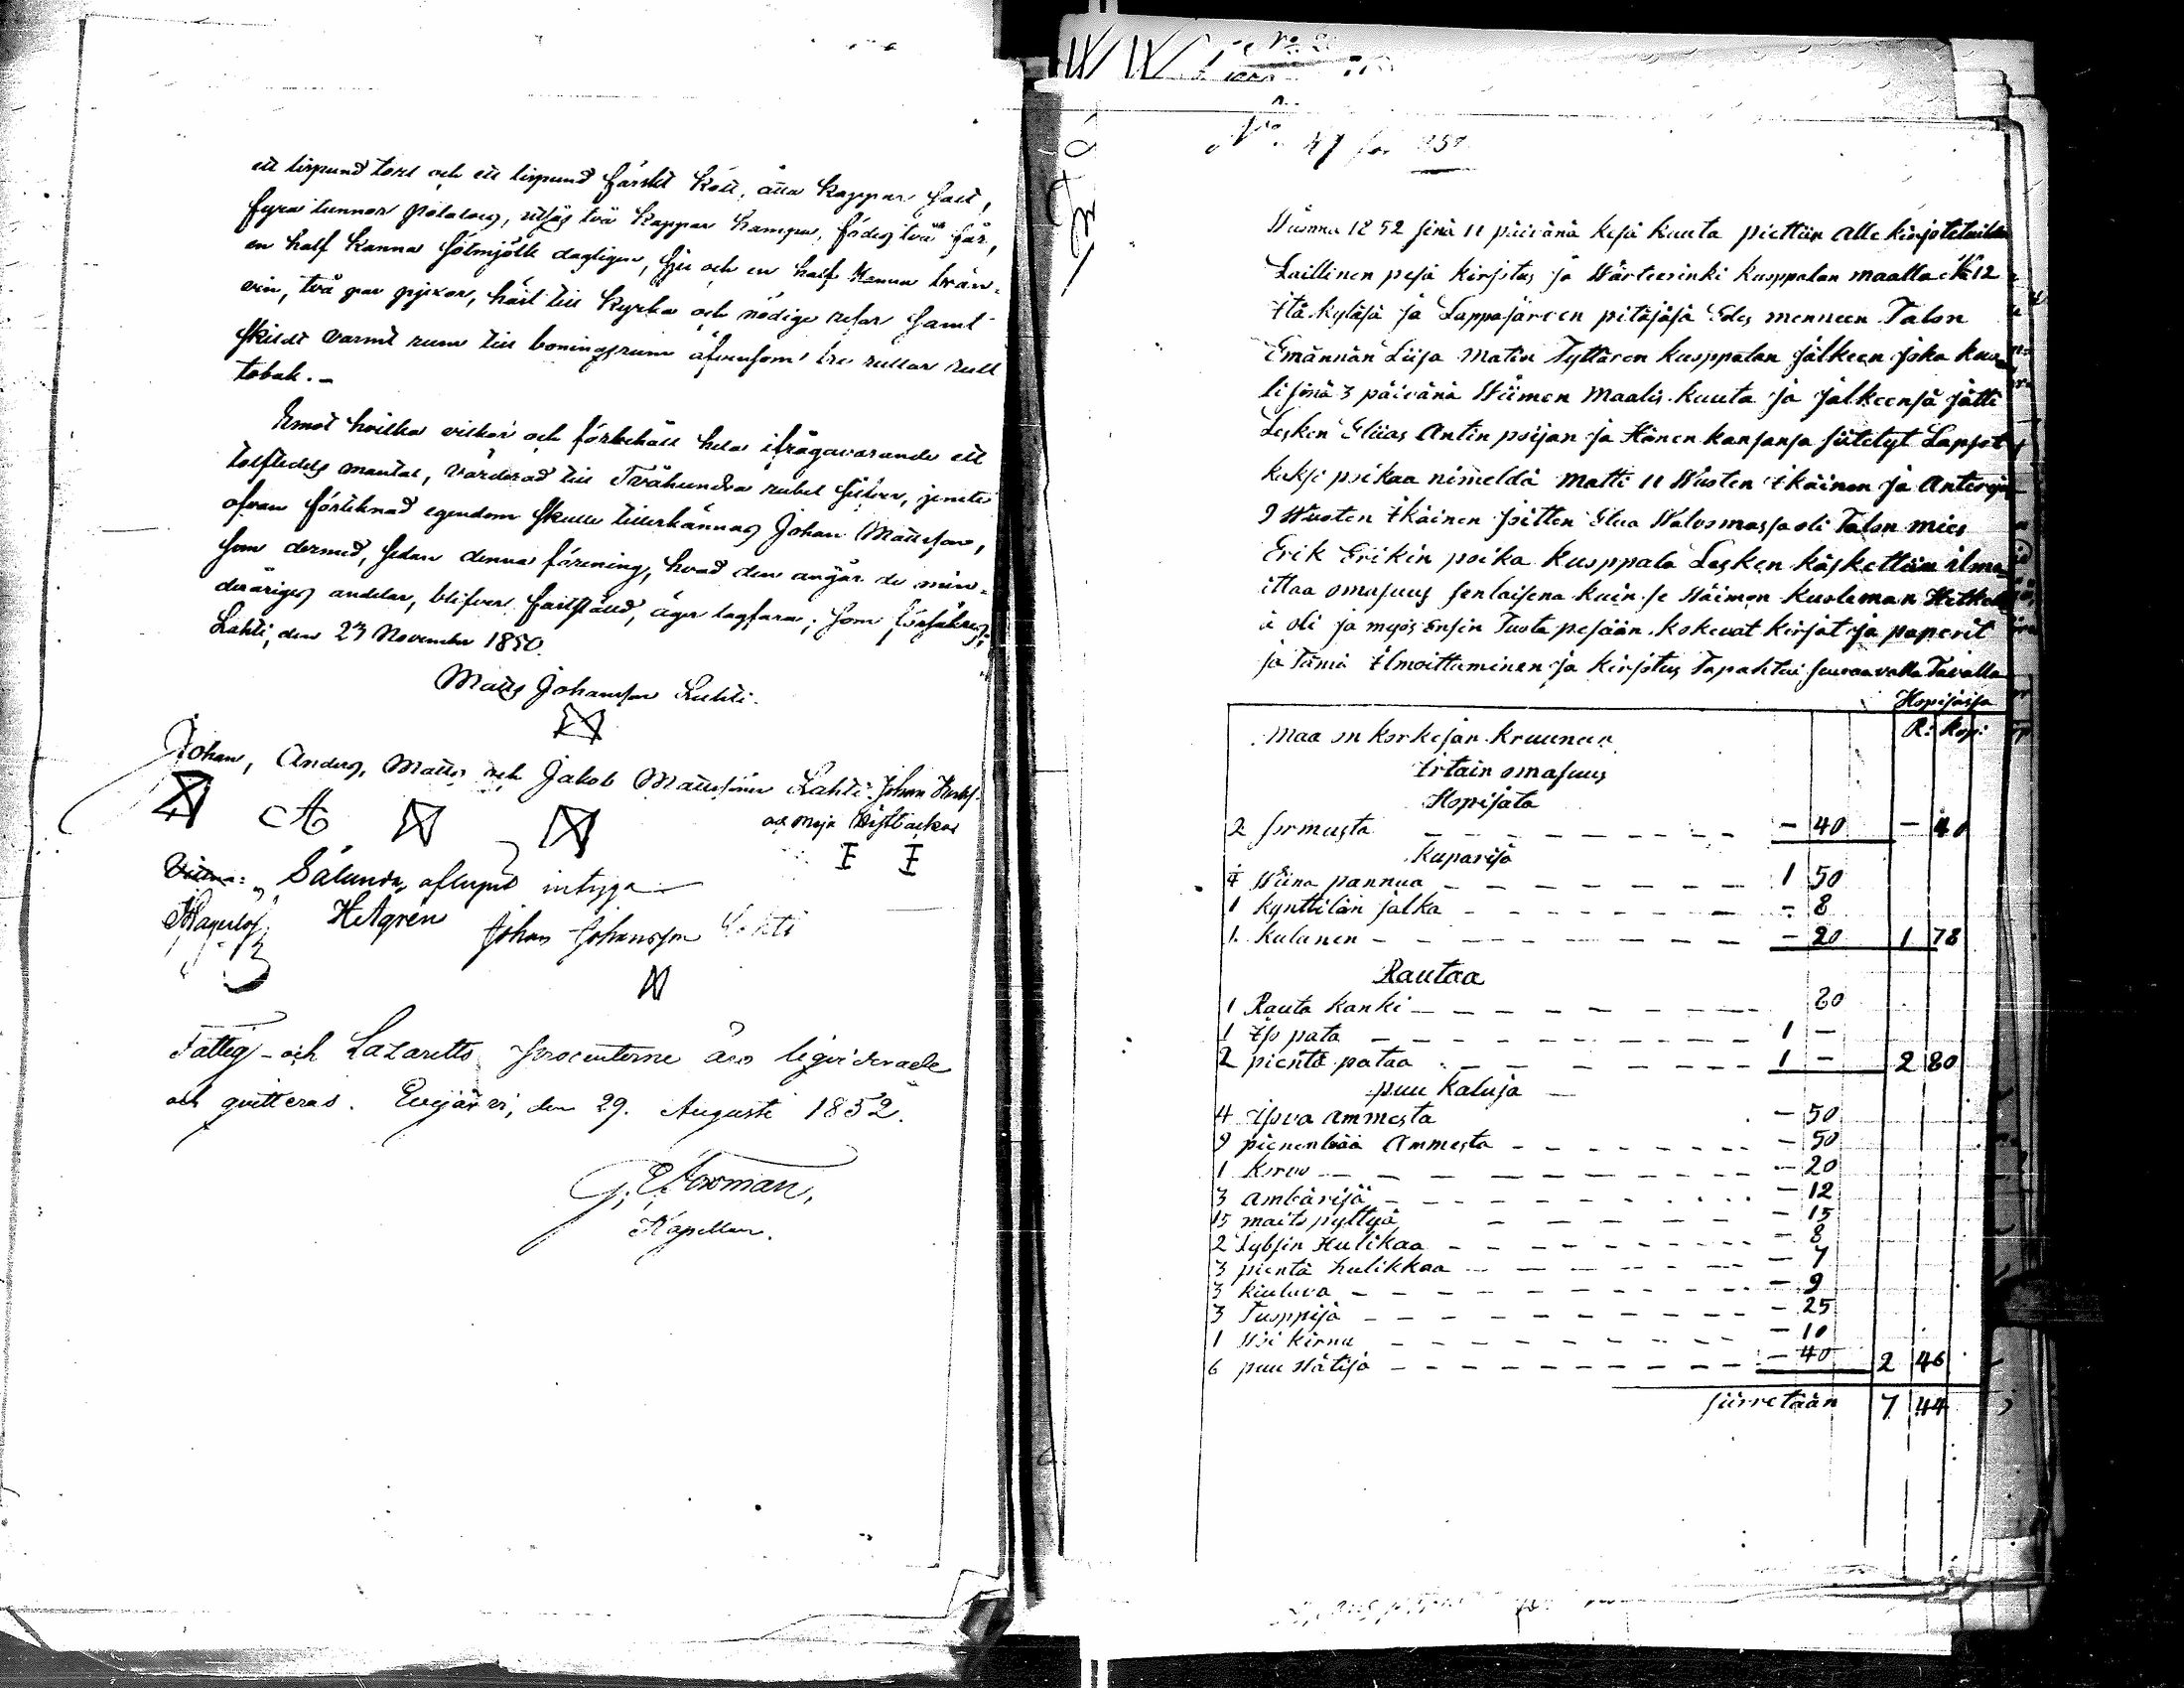 ett lispund torrt och ett lispund färskt kött, åtta kappar salt,
fyra tunnor potatoes, utsäs två kappar hampa, födes två får,
en half kanna sötmjölk dagligen, sju och en half kanna brän-
vin, två par pjexor, häst till kyrka och nödige resor samt
skildt varmt rum till boningsrum äfvensom tre rullar rull
tobak. -
Emot hvilka vilkor och förbehåll hela ifrågavarande ett
tolftedels mantal, värderad till Tvåhundra rubel silfver, jemte
ofvan förteknad egendom skulle tillerkännas Johan Mattsson,
som dermed, sedan denna förening, hvad den angår de min-
deråriges andelar, blifver fastställd, äger lagfara; som försäkras;
Lahti, den 23 November 1850.
Matts Johansson Lahti.
Johan, Anders, Matts och Jakob Mattssöner Lahti. Johan
och Maja
Sålunda aflupit intyga
H Agrén Johan Johansson Lahti
Fattig- och Lazaretts procenterne äro liqviderade
och qvitteras. Evijärvi, den 29. Augusti 1852.
G. E. Forman,
Kapellan.
No. 47 för 1852
Wuonna 1852 sinä 11 päivänä kesä kuuta piettiin alle kirjotetuilda
Laillinen pesä kirjotus ja Wärteerinki kuoppalan maalla No 12
Itä kyläsä ja Lappajärven pitäjäsä Edes menneen Talon
Emännän Liisa Matin Tyttären kuoppalan jälkeen joka kuo-
li sinä 3 päivänä Wiimen Maalis kuuta ja jälkeensä jätti
Lesken Eliias Antin poijan ja Hänen kansansa siitetyt Lapset
kaksi poikaa nimeldä Matti 11 Wuoten Ikäinen ja Anteroja
9 Wuoten Ikäinen sitten Etua Walvomassa oli Talon mies
Erik Erikin poika kuoppala Lesken käskettiin ilmo-
ittaa omasuus senlaisena kuin se Waimon kuoleman Hetkell
ä oli ja myös ensin Tuota pesään kokevat kirjat ja paperit
ja Tämä Ilmoittaminen ja kirjotus Tapahtui seuraavalla Tavalla
Hopijassa
R: kop:
Maa on korkejan kruunun
Irtain omasuus
Hopijata
2 sormusta — 40 — 40
Kuparija
1 Wiina pannua 1 50
1 kynttilän jalka - 8
1 kulanen — 20 1 78
Rautaa
1 Rauta kanki 80
1 Iso pata 1 —
2 pientä pataa 1 — 2 80
puu kaluja
4 isova ammesta — 50
9 pienenbää Ammesta — 50
1 korvo — 20
3 ambärijä — 12
15 maito pyttyä — 15
2 Lybsin Hulikaa — 8
3 pientä hulikkaa — 7
3 kiuluva — 9
3 Tuoppija — 25
1 Woi kirnu — 10
6 puu Wätijä — 40 2 46
siirretään 7 44